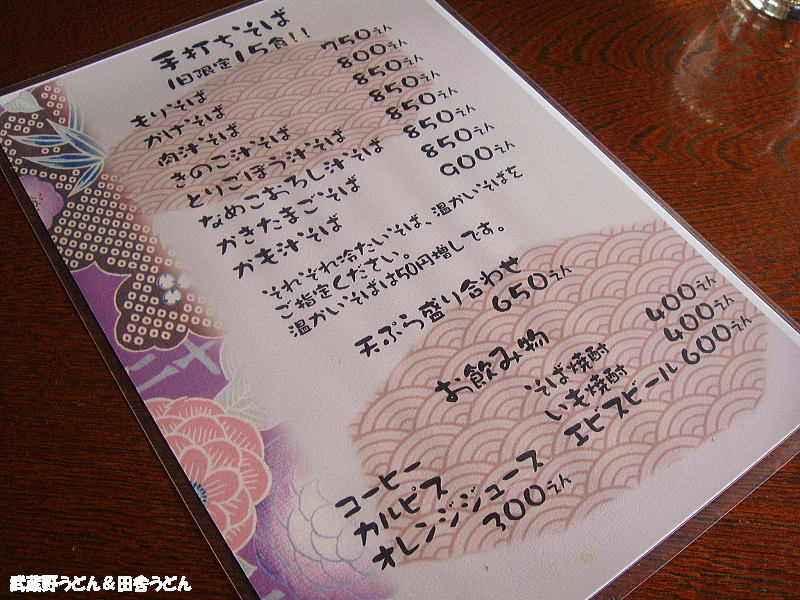 手打ちそば
1日限定15食!!
もりそば 750えん
かけそば 800えん
肉汁そば 850えん
きのこ汁そば 850えん
とりごぼう汁そば 850えん
なめこおろし汁そば 850えん
かきたまごそば 850えん
かも汁そば 900えん
それぞれ冷たいそば、温かいそばを
ご指定ください。
温かいそばは50円増しです。
天ぷら盛り合わせ
650えん
お飲み物
そば焼酎 400えん
いも焼酎 400えん
エビスビール 600えん
コーヒー
カルピス
オレンジジュース
300えん
武蔵野うどん&田舎うどん